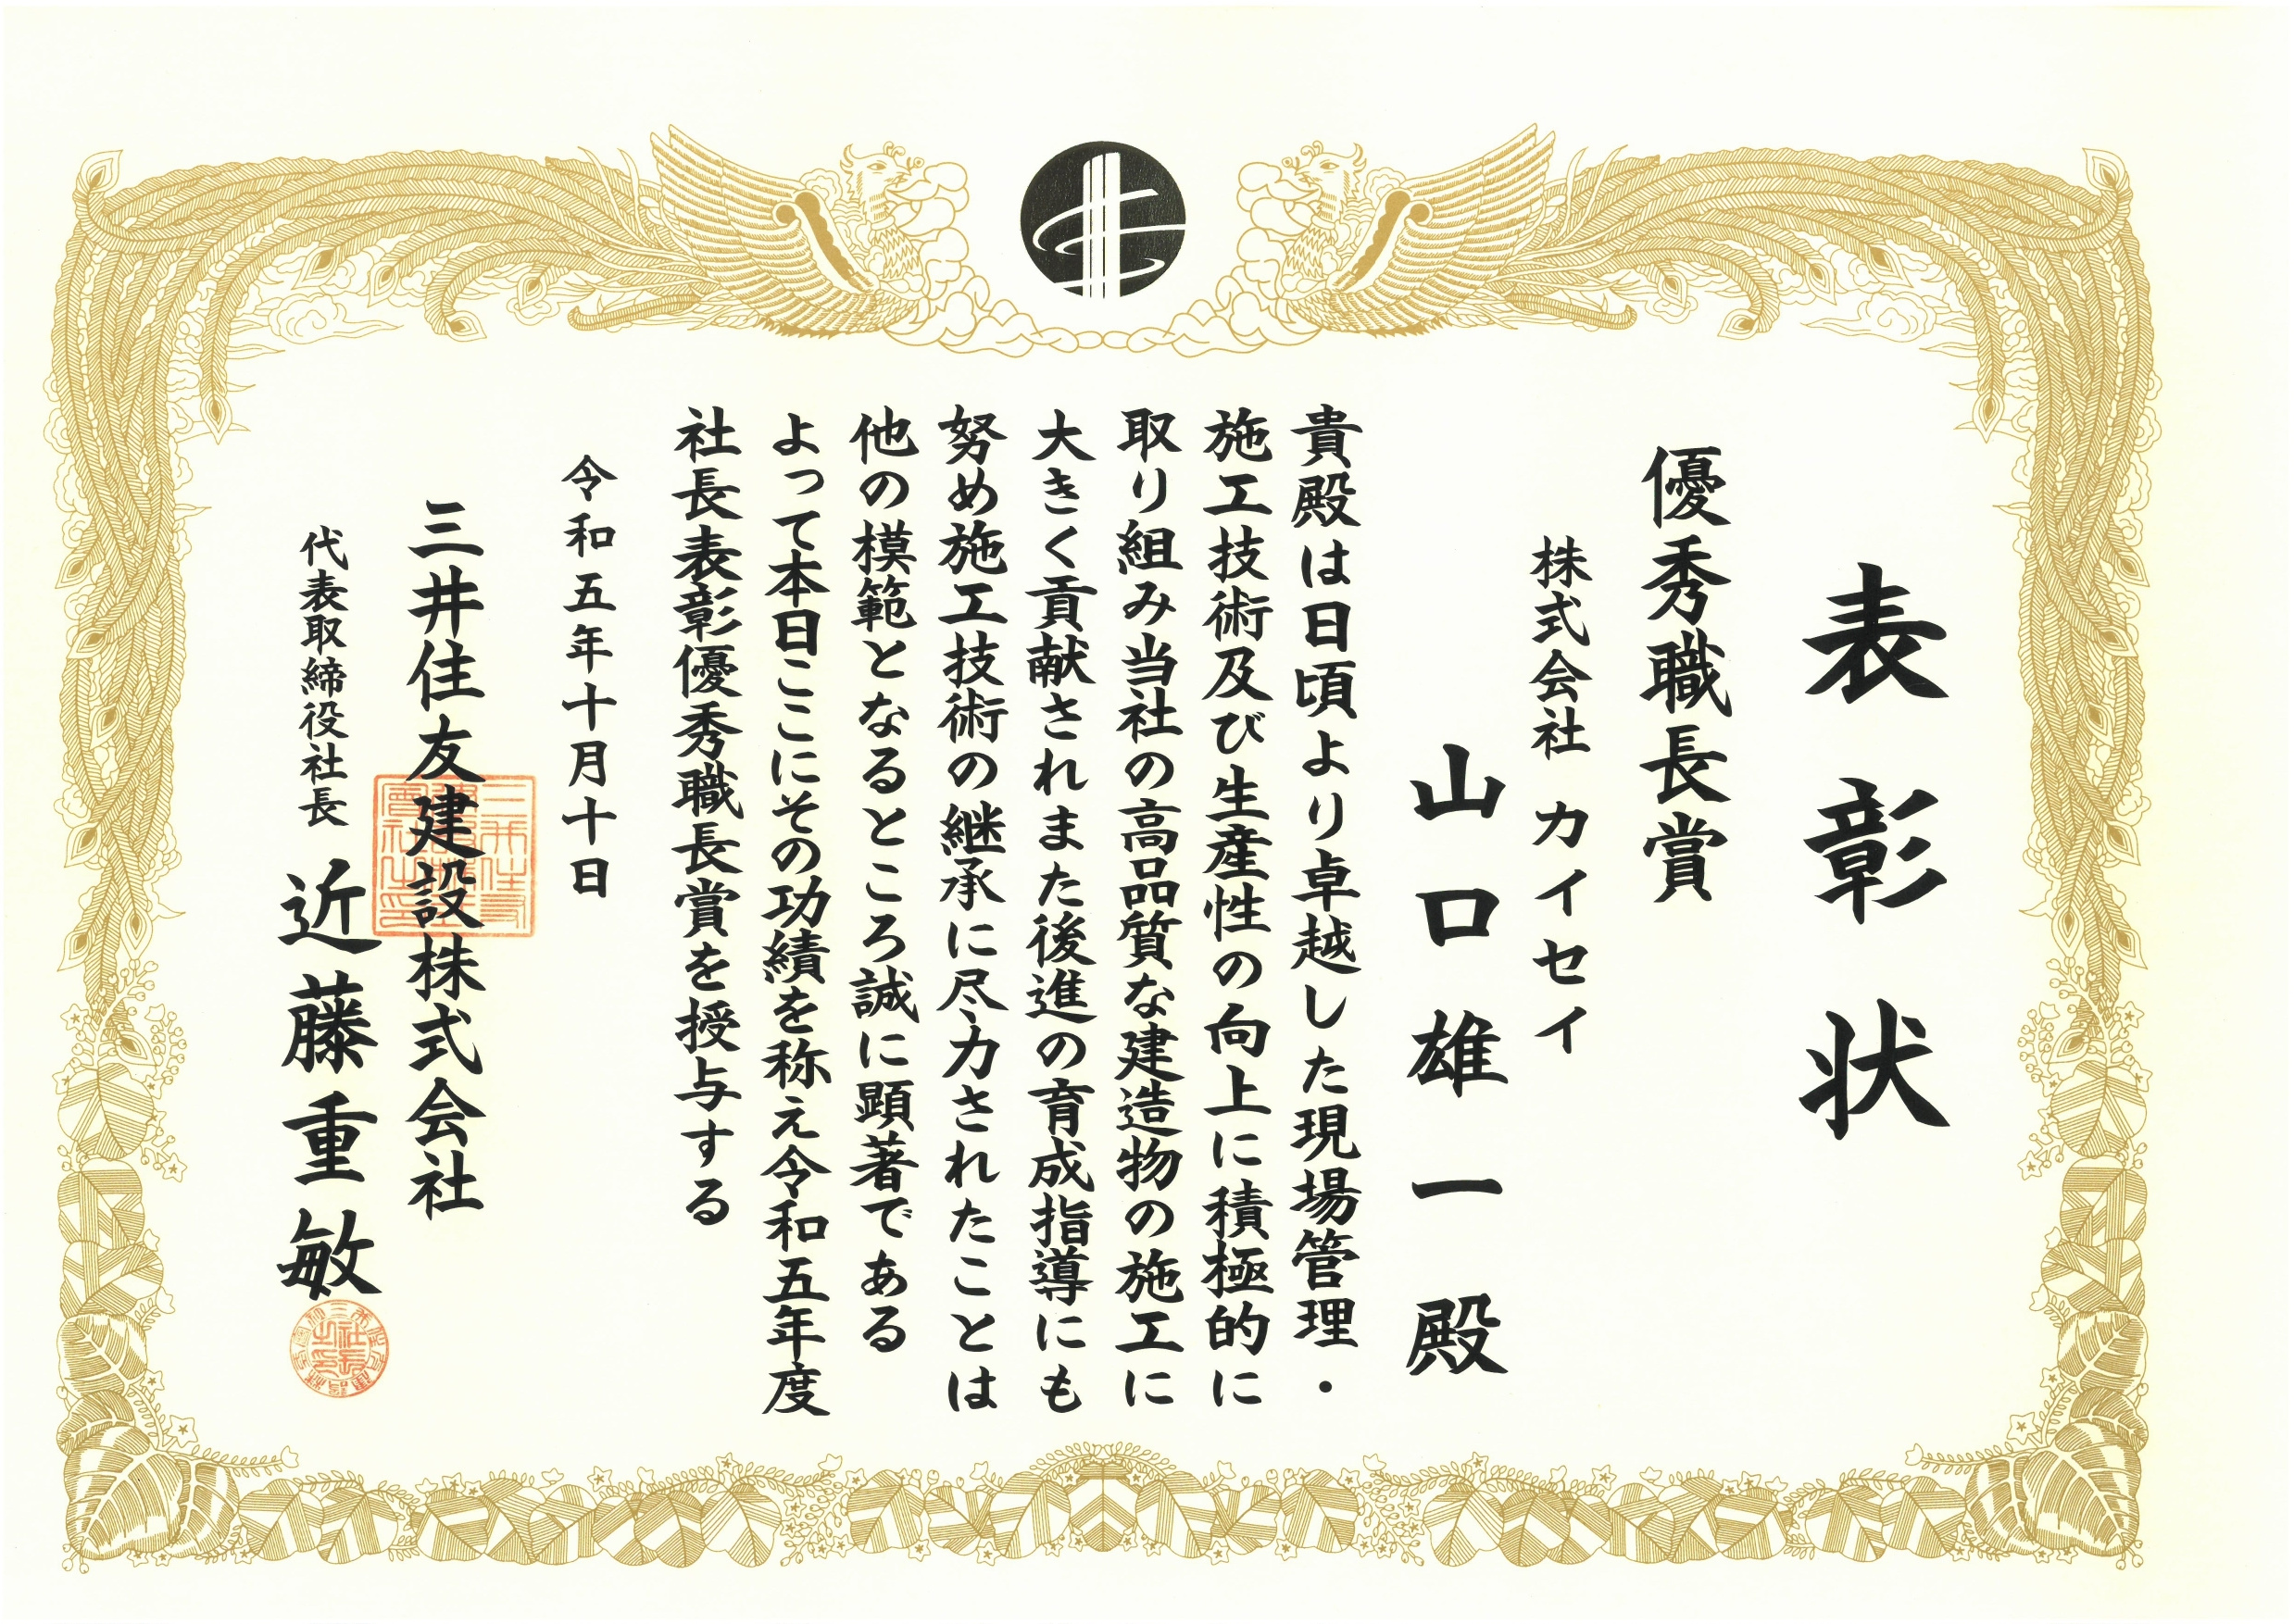 表彰状
優秀職長賞
株式会社 カイセイ
山口雄一殿
貴殿は日頃より卓越した現場管理・
施工技術及び生産性の向上に積極的に
取り組み当社の高品質な建造物の施工に
大きく貢献されまた後進の育成指導にも
努め施工技術の継承に尽力されたことは
他の模範となるところ誠に顕著である
よって本日ここにその功績を称え令和五年度
社長表彰優秀職長賞を授与する
令和五年十月十日
三井住友建設株式会社
代表取締役社長 近藤重敏